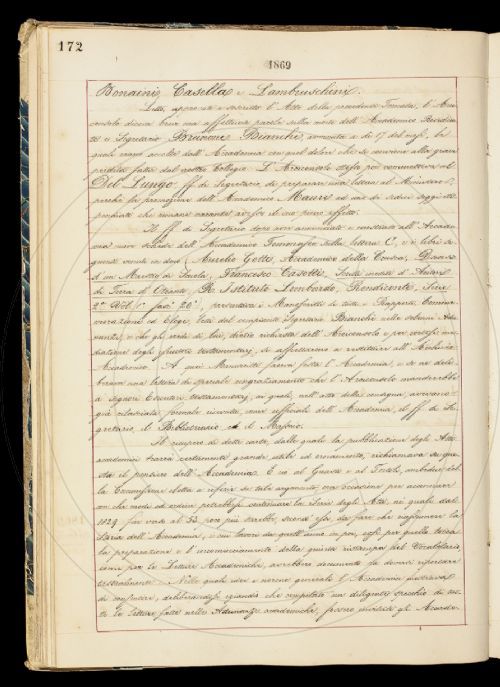 172
1869
Bonaini, Casella e Lambruschini.
Letto, approvato e sottoscritto l'Atto della precedente Tornata, l'Arci
consolo disse brevi ma affettuose parole sulla morte dell'Accademico Residen
te e Segretario Brunone Bianchi, avvenuta a dì 17 del mese, le
quali furono accolte dall'Accademia con quel dolore che si conviene alla grave
perdita fatta dal nostro Collegio. L'Arciconsolo stesso poi commetteva al
Del Lungo ff. di Segretario, di preparare una lettera al Ministero,
perchè la promozione dell'Accademico Mauri ad una di sedici seggi sti
pendiati che rimane vacante avesse il suo pieno effetto.
Il ff. di Segretario dopo aver annunziate e mostrate all'Accade
mia nuove schede dell'Accademico Fanfani sulla lettera C, e i libri se
guenti venuti in dono (Aurelio Gotti, Accademico della Crusca,
d'un Maestro di Scuola, Francesco Casotti, Scritti inediti d'Autori
di Terra d'Otranto, R. Istituto Lombardo, Rendiconti, Serie
2ª Vol. 1º fasc. 20º), presentava i Manoscritti di tutti i Rapporti, Comme
morazioni ed Elogi, letti dal compianto Segretario Bianchi nelle solenni Adu
nanze, e che gli eredi di lui, dietro richiesta dell'Arciconsolo e per cortese me
diazione degli esecutori testamentarj, si affrettarono a restituire all'Archivio
Accademico. A suoi Manoscritti faceva festa l'Accademia, e se ne deli
berava una lettera di speciale ringraziamento che l'Arciconsolo manderebbe
a' Signori Esecutori testamentarj, ai quali, nell'atto della consegna, avevano
già rilasciata formale ricevuta, come ufficiali dell'Accademia, il ff. di Se
gretario, il Bibliotecario ed il Massaio.
Il ricupero di dette carte, dalle quali la pubblicazione degli Atti
accademici trarrà certamente grande utile ed ornamento, richiamava su que
sta il pensiero dell'Accademia. E ciò al Guasti e al Tortoli, ambedue dal
la Commissione eletta a riferire su tale argomento, era occasione per accennare
con che modo ed ordine potrebbesi continuare la Serie degli Atti, ne' quali dal
1829 fin verso al 53 poco più sarebbe, secondo essi, da fare che riassumere la
Storia dell'Accademia, e i cui lavori da quell'anno in poi, sì per quello tocca
la preparazione e il incominciamento della quinta ristampa del Vocabolario,
come per le Lezioni Accademiche, avrebbero documenti da doversi riportare
testualmente. Nelle quali idee e norme generali l'Accademia mostrava
di consentire, deliberandosi quindi che compilato un diligente specchio di tut
te le letture fatte nelle Adunanze accademiche, fossero invitati gli Accade-